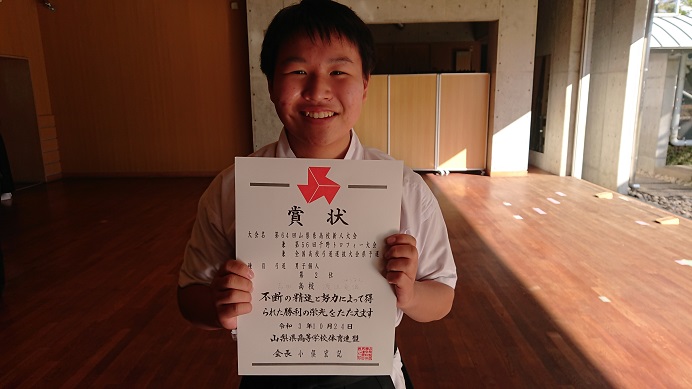 賞状
大会名 第64回山梨県高校新人大会
兼 第56回千野トロフィー大会
兼 全国高校弓道選抜大会県予選
種目 弓道 男子個人
第2位
高校
不断の精進と努力によって得
られた勝利の栄光をたたえます
令和3年10月24日
山梨県高等学校体育連盟
会長 小俣宏記